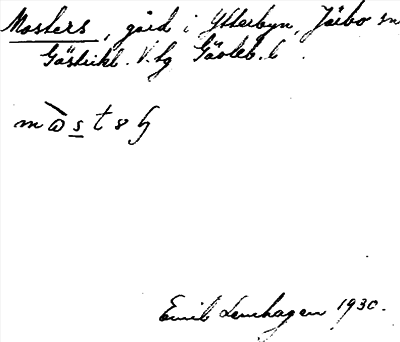 Mosters, gård i Ytterbyn, Järbo sn
Gästrikl. V.tg Gävleb. l.
Emil Lenhagen 1930.